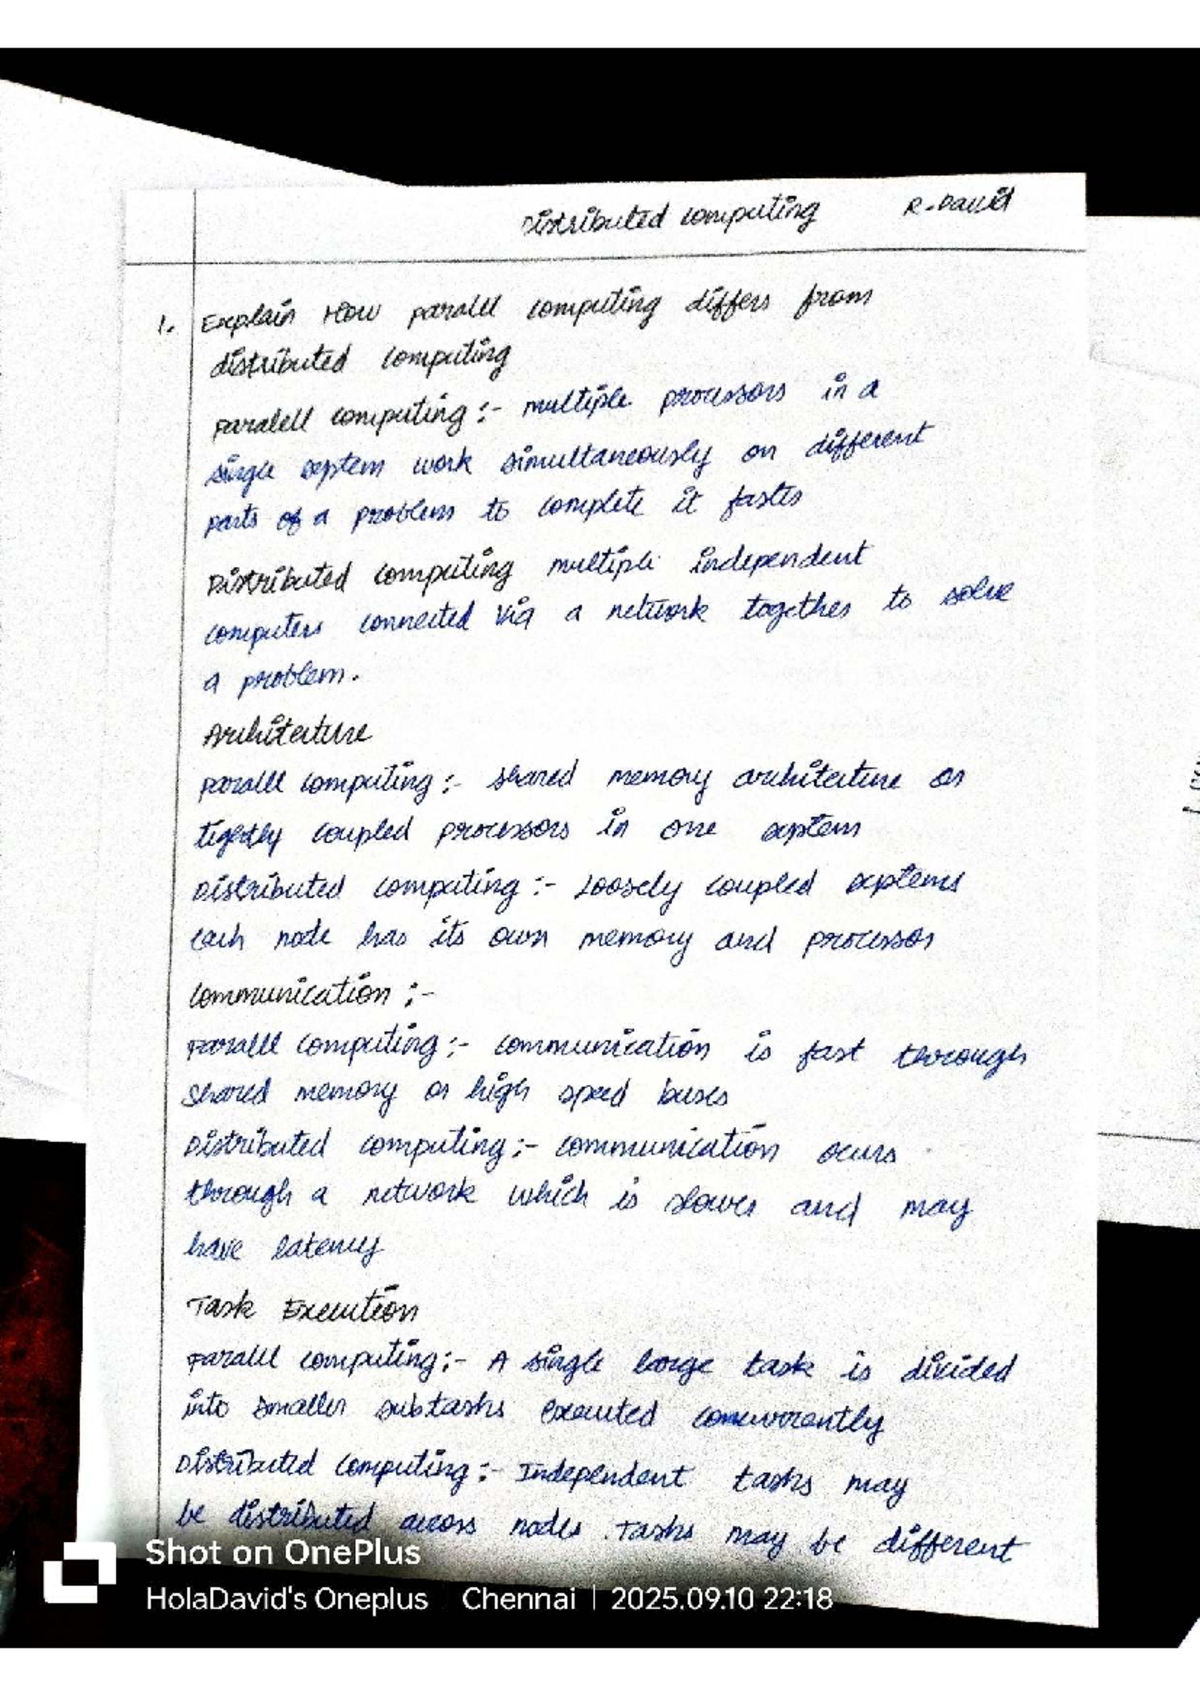 Distributed computing R-David
1. Explain How parallel computing differs from
distributed computing
paralell computing :- multiple processors in a
single system work simultaneously on different
parts of a problem to complete it faster
Distributed computing multiple independent
computers connected via a network together to solve
a problem.
Architecture
parallel computing :- shared memory architecture or
tightly coupled processors in one system
Distributed computing :- Loosely coupled systems
each node has its own memory and processor
Communication :-
Parallel computing :- communication is fast through
shared memory or high speed buses
Distributed computing :- communication ocurs
through a network which is slower and may
have latency
Task Execution
Parallel computing :- A single large task is divided
into smaller subtasks executed concurrently
Distributed computing :- Independent tasks may
be distributed across nodes. Tasks may be different
Shot on OnePlus
HolaDavid's Oneplus | Chennai | 2025.09.10 22:18